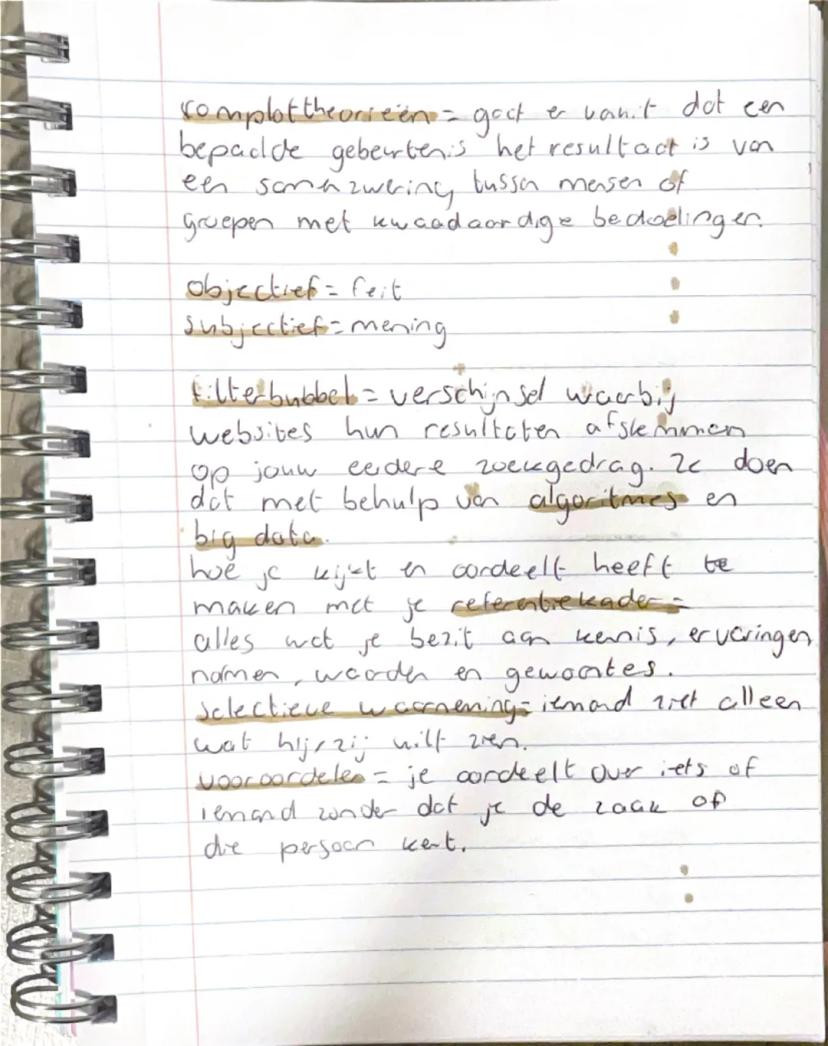 complottheorieën = gaat er vanuit dat een
bepaalde gebeurtenis het resultaat is van
een samenzwering tussen mensen of
groepen met kwaadaardige bedoelingen.
objectief = feit
subjectief = mening
filterbubbel = verschijnsel waarbij
websites hun resultaten afstemmen
op jouw eerdere zoekgedrag. Ze doen
dat met behulp van algoritmes en
big data.
hoe je kijkt en oordeelt heeft te
maken met je referentiekader =
alles wat je bezit aan kennis, ervaringen
normen, waarden en gewoontes.
Selectieve waarneming = iemand ziet alleen
wat hij/zij wilt zien.
vooroordelen = je oordeelt over iets of
iemand zonder dat je de zaak of
die persoon kent.